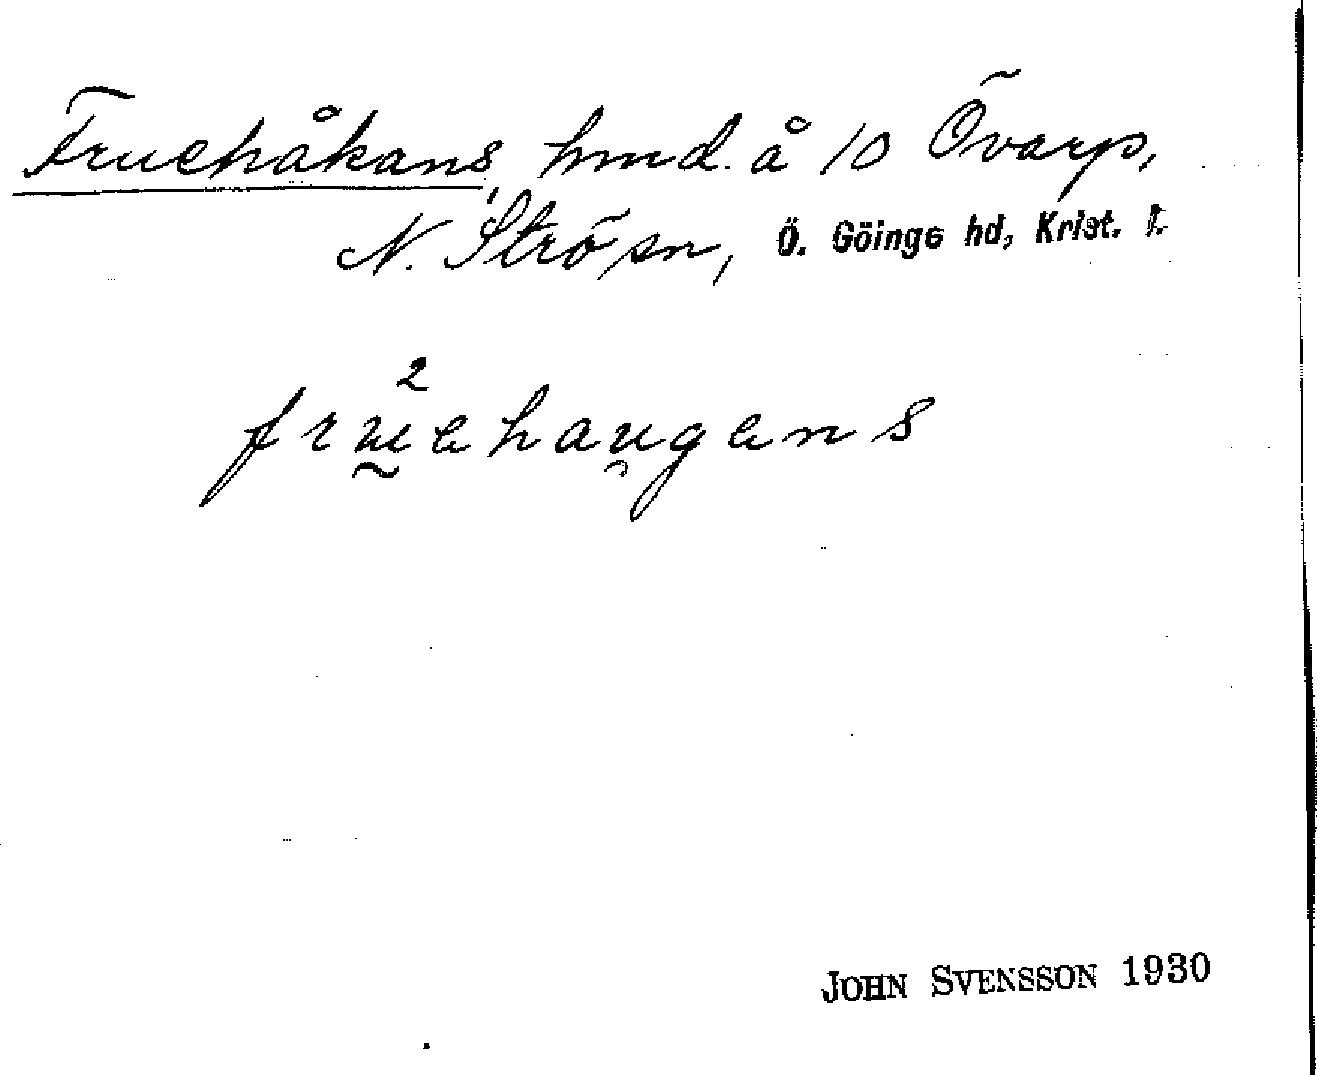 Fruehåkans, hmd. å 10 Övarp,
N. Strö sn, Ö. Göinge hd, Krist. l.
2
fruehaugens
JOHN SVENSSON 1930